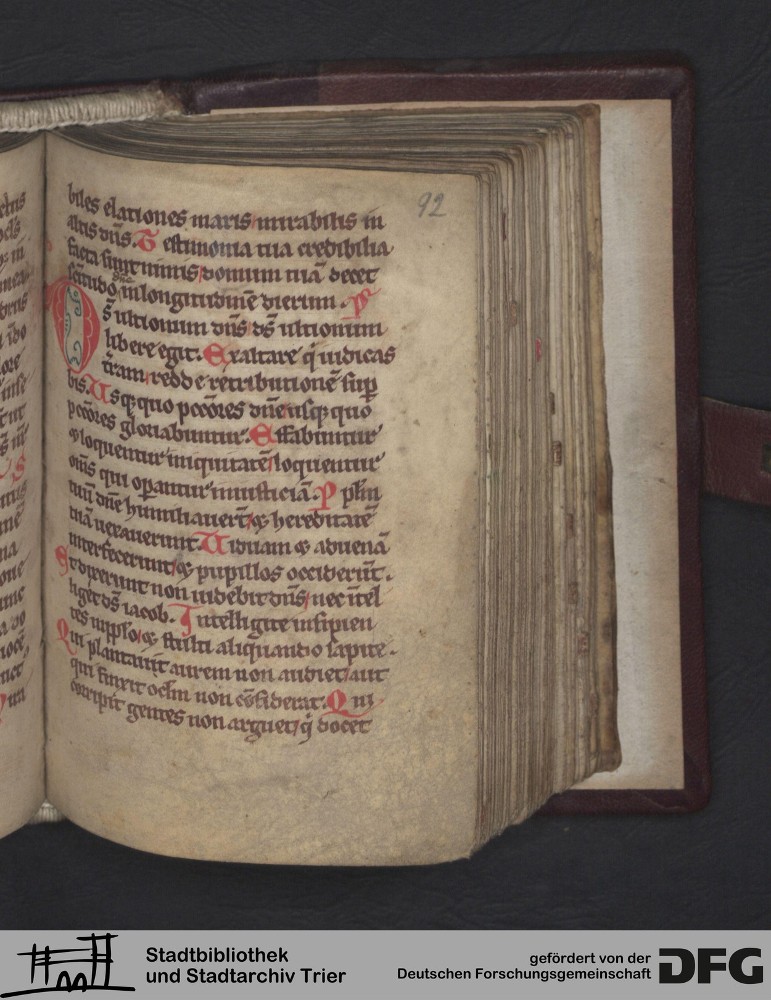 92
biles elationes maris mirabilis in
altis dñs. Testimonia tua credibilia
facta sunt nimis domum tuā decet
sc̄itudo dn̄e in longitudinē dierum. P̄
Ds̄ ultionum dñs ds̄ ultionum
libere egit. Exaltare q̇ iudicas
t̄ram redde retributionē sup̄
bis. Usq̨ quo pccōres dn̄e usq̨ quo
pccōres gloriabuntur. Effabuntur
⁊ loquentur iniquitatē loquentur
om̄s qui op̄antur iniusticiā. Pplm̄
tuū dn̄e humiliauerūt ⁊ hereditatē
tuā uexauerunt. Uiduam ⁊ aduenā
interfecerunt ⁊ pupillos occiderūt.
Et dixerunt non uidebit dñs nec ītel
liget ds̄ iacob. Intelligite insipien
tes in pplo ⁊ stulti aliquando sapite.
Qui plantauit aurem non audiet aut
qui finxit oclm̄ non cōsiderat. Qui
corripit gentes non arguet q̇ docet
Stadtbibliothek
und Stadtarchiv Trier
gefördert von der
Deutschen Forschungsgemeinschaft
DFG